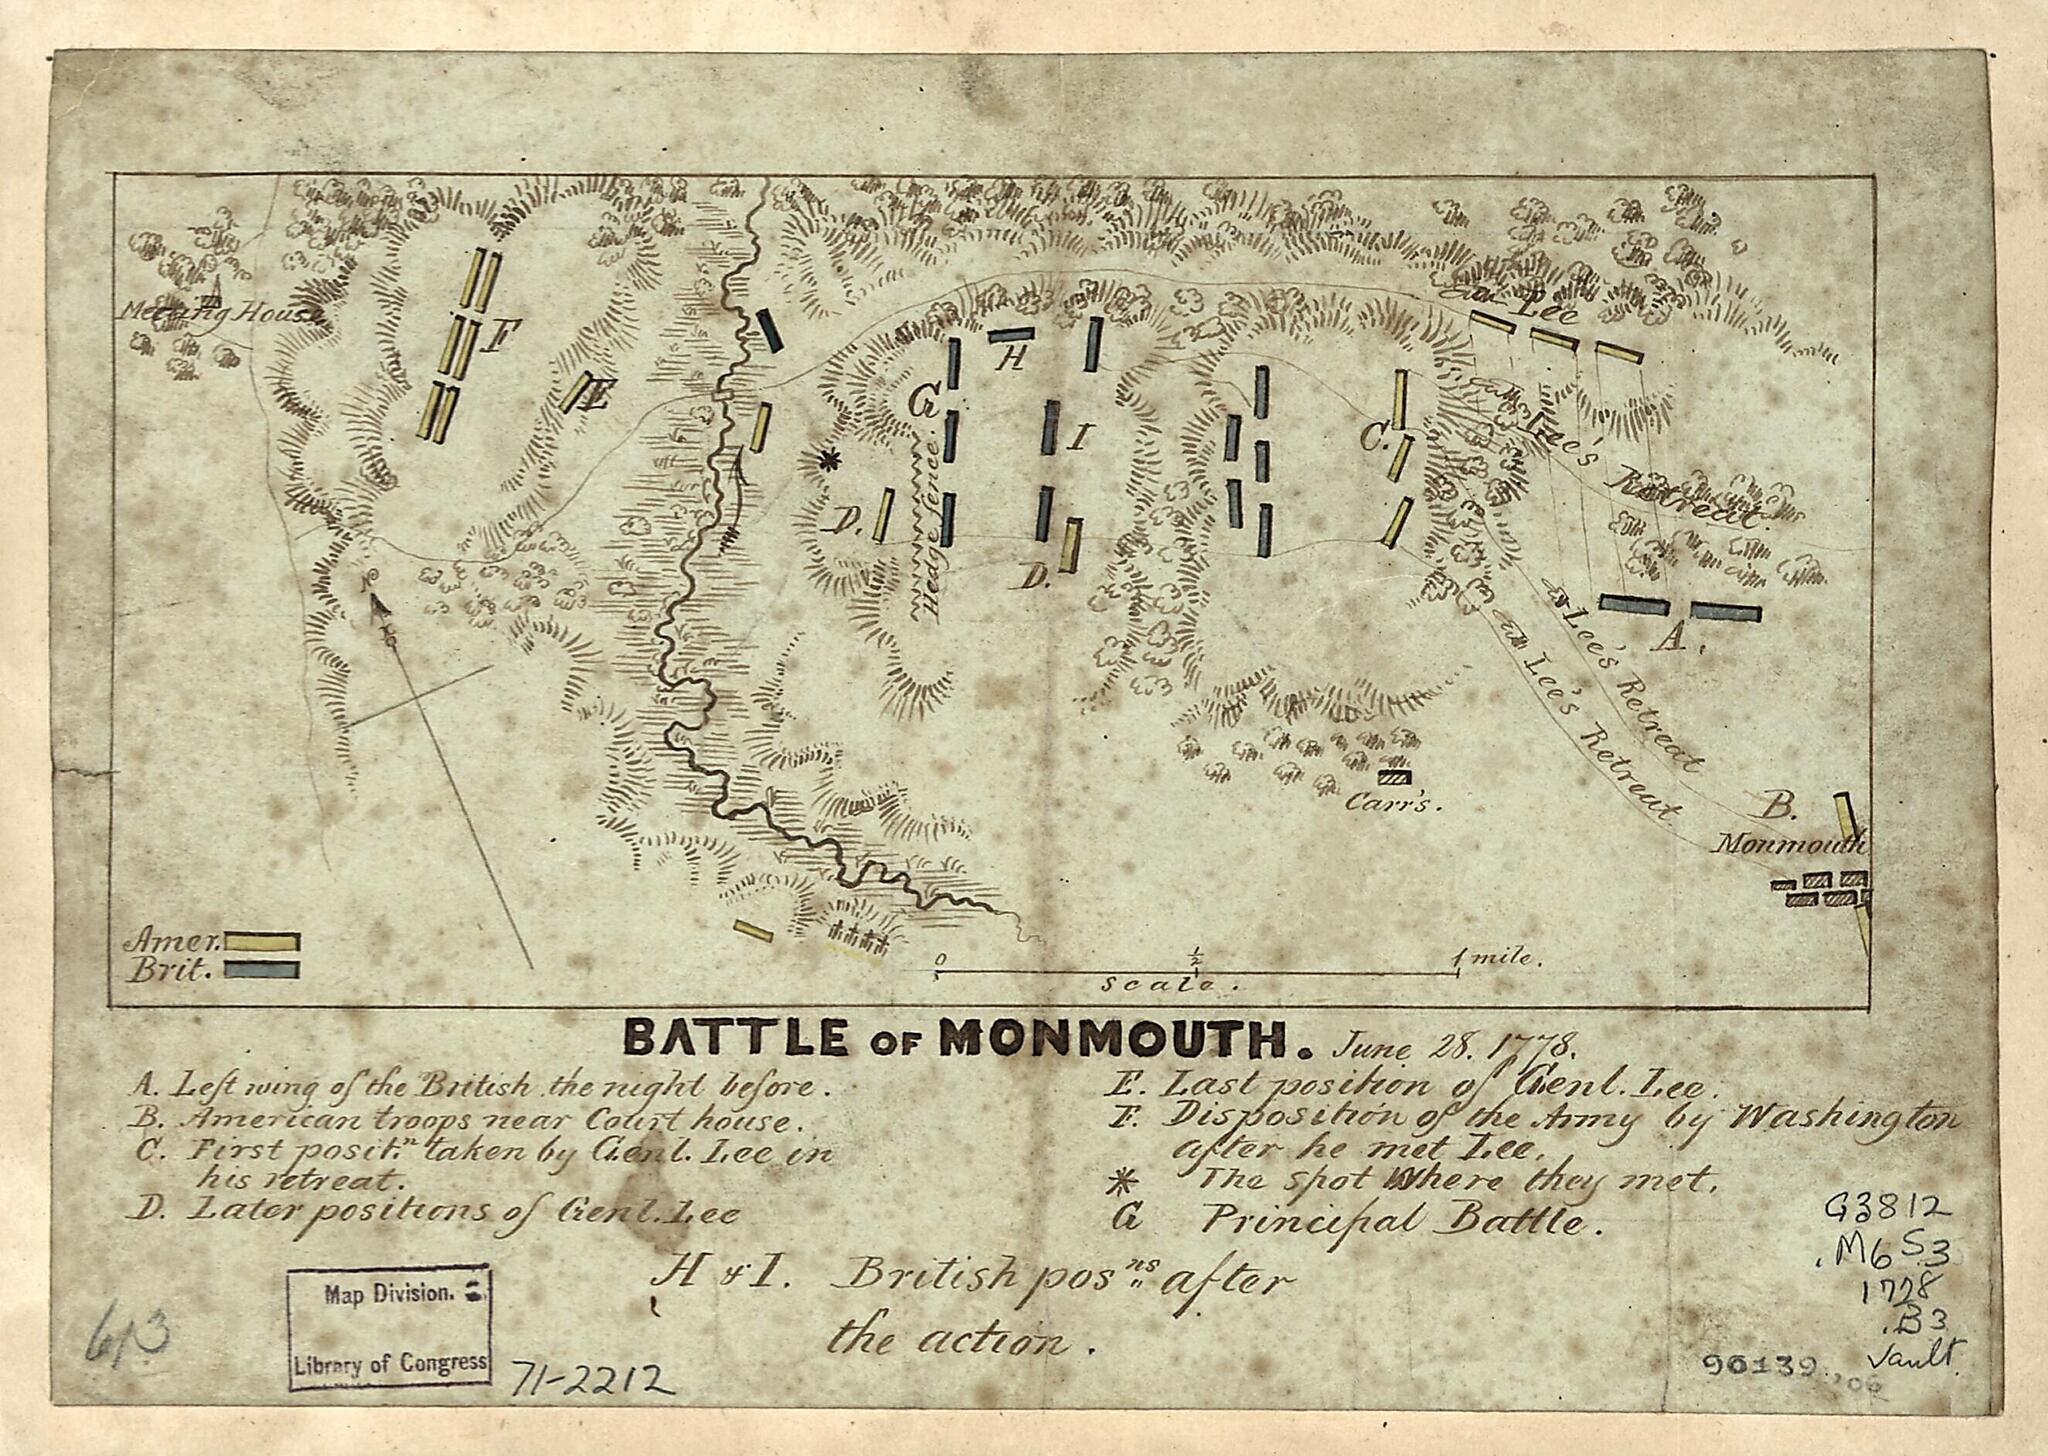 Meeting House
F
E
H
G
I
C.
D.
Hedge fence.
D.
Lee
Lee's Retreat
A.
Lee's Retreat
Lee's Retreat
N
B.
Monmouth
Carr's.
Amer.
Brit.
0 1/2 1 mile.
scale.
BATTLE OF MONMOUTH. June 28. 1778.
A. Left wing of the British the night before.
B. American troops near Court house.
C. First posit.n taken by Genl. Lee in
his retreat.
D. Later positions of Genl. Lee
E. Last position of Genl. Lee.
F. Disposition of the Army by Washington
after he met Lee.
* The spot where they met.
G Principal Battle.
H & I. British posns after
the action.
Map Division.
Library of Congress
71-2212
613
G3812
.M6S3
1778
.B3
Vault
90139 '06